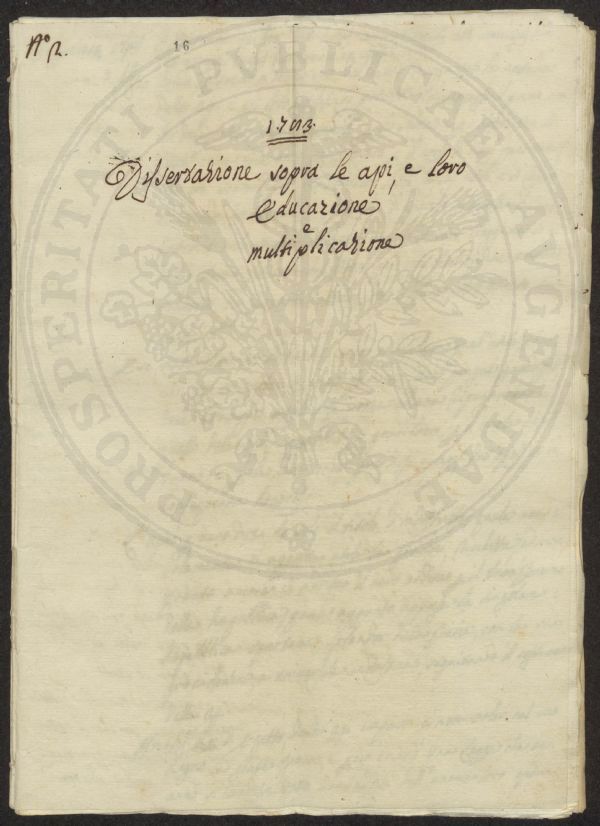 N.º 2.
16
Dissertazione sopra le api, e loro
Educazione
e
multiplicazione
PROSPERITATI PUBLICAE AVGENDAE